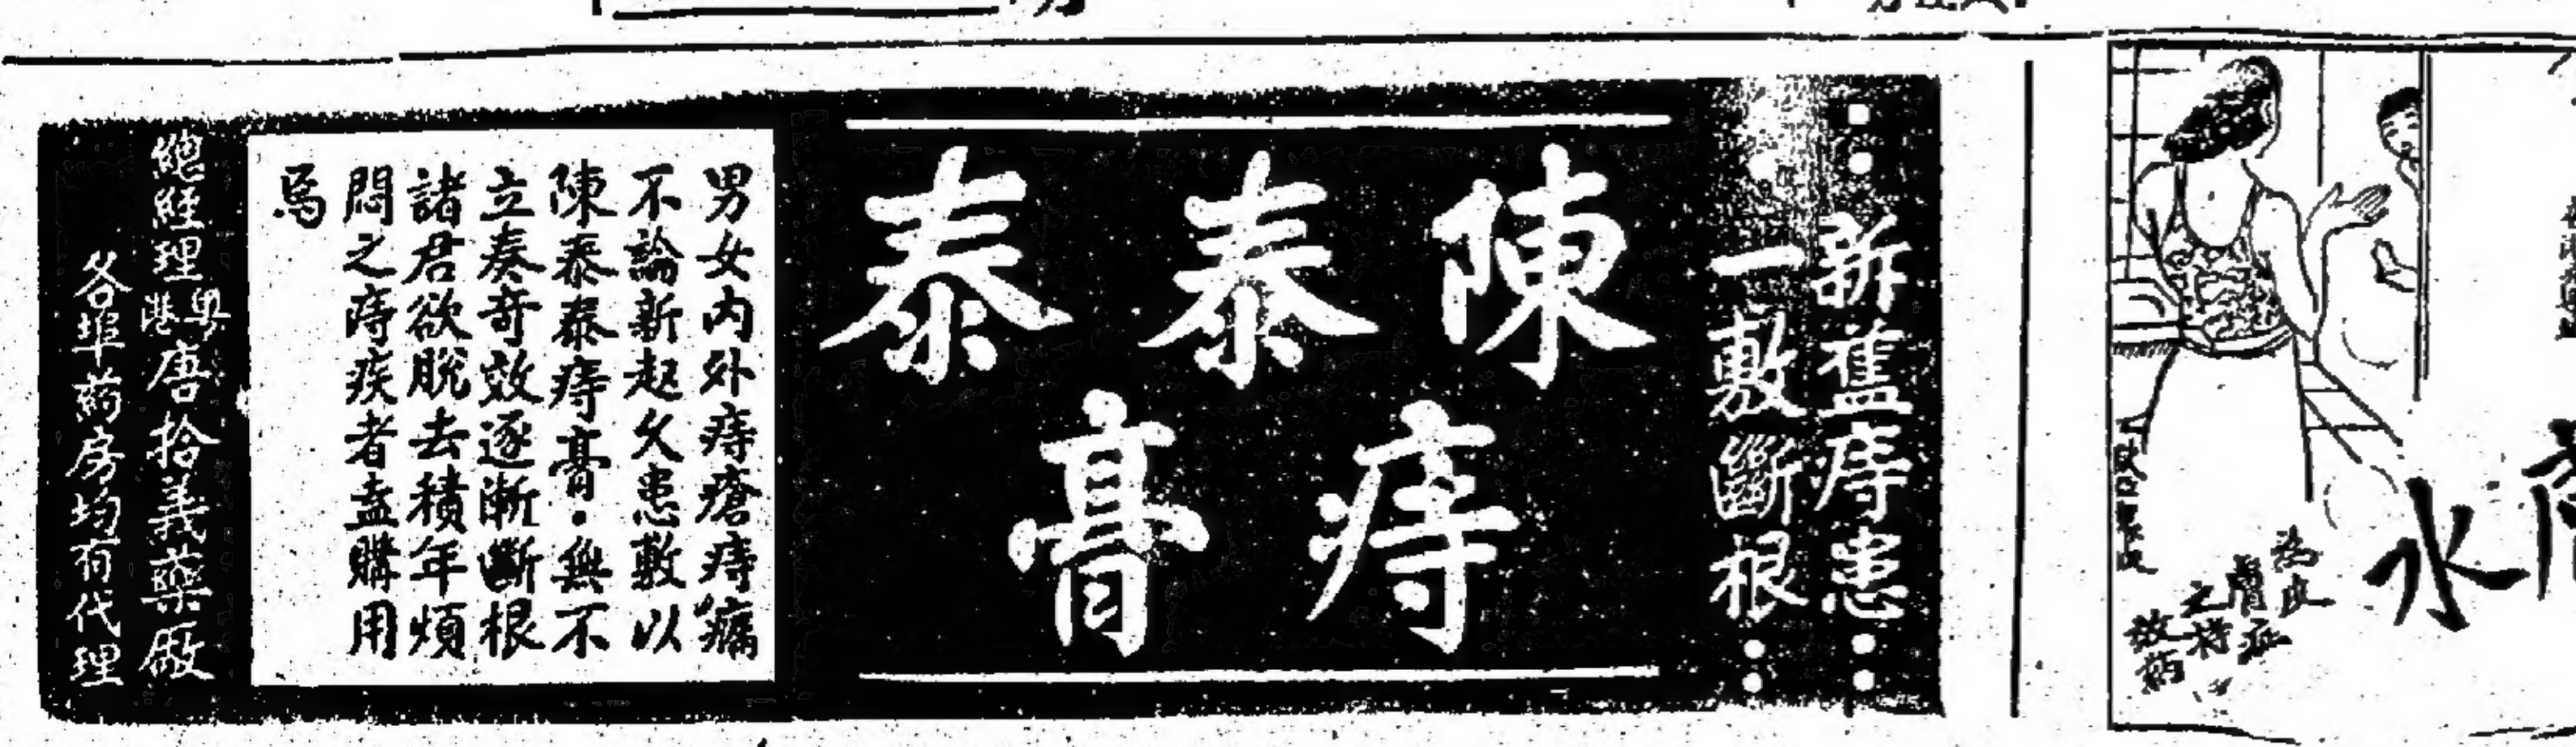 新舊痔患
一敷斷根
陳泰泰
痔膏
男女内外痔瘡痔瘺
不論新起久患敷以
陳泰泰痔膏·無不
立奏奇效逐漸斷根
諸君欲脫去積年煩
悶之痔疾者盍購用
焉
總經理粵港唐拾義藥廠
各埠药房均有代理
水
之特
效葯